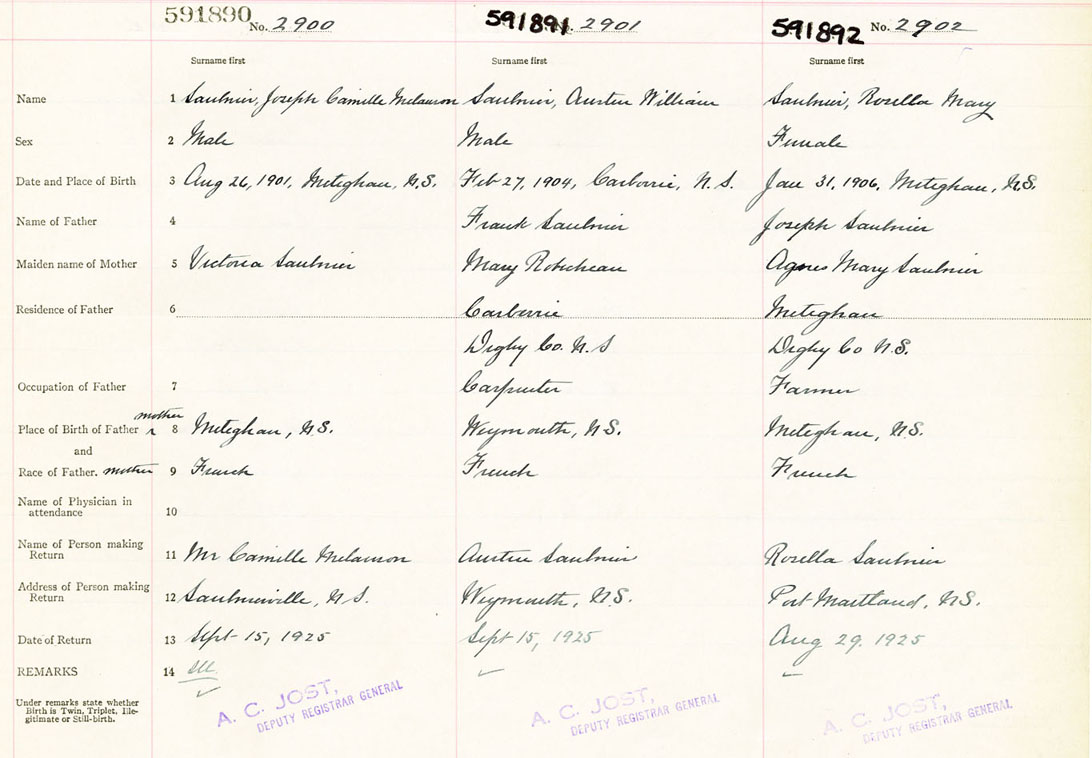 591890 No. 2900 591891 No. 2901 591892 No. 2902
Surname first Surname first Surname first
Name 1 Saulnier, Joseph Camille Melanson Saulnier, Austin William Saulnier, Rosella Mary
Sex 2 Male Male Female
Date and Place of Birth 3 Aug 26, 1901, Meteghan, N.S. Feb 27, 1904, Carborrie, N.S. Jan 31, 1906, Meteghan, N.S.
Name of Father 4 Frank Saulnier Joseph Saulnier
Maiden name of Mother 5 Victoria Saulnier Mary Robicheau Agnes Mary Saulnier
Residence of Father 6 Carborrie Meteghan
Digby Co. N.S Digby Co N.S.
Occupation of Father 7 Carpenter Farmer
mother
Place of Birth of Father 8 Meteghan, N.S. Weymouth, N.S. Meteghan, N.S.
and
Race of Father. mother 9 French French French
Name of Physician in
attendance 10
Name of Person making
Return 11 Mr Camille Melanson Austin Saulnier Rosella Saulnier
Address of Person making
Return 12 Saulnierville, N.S. Weymouth, N.S. Port Maitland, N.S.
Date of Return 13 Sept 15, 1925 Sept 15, 1925 Aug 29. 1925
REMARKS 14 Ill.
Under remarks state whether
Birth is Twin, Triplet, Ille-
gitimate or Still-birth.
A. C. JOST, A. C. JOST, A. C. JOST,
DEPUTY REGISTRAR GENERAL DEPUTY REGISTRAR GENERAL DEPUTY REGISTRAR GENERAL